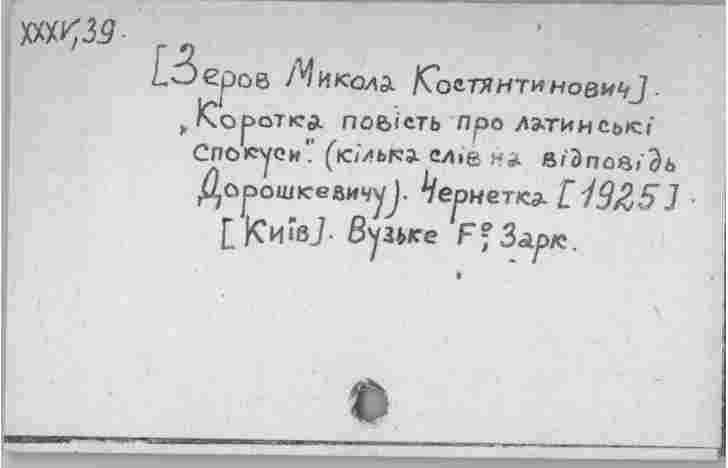 XXXV,39.
[Зеров Микола Костянтинович].
„Коротка повість про латинські
спокуси". (кілька слів на відповідь
Дорошкевичу). Чернетка [1925].
[Київ]. Вузьке Fº, 3арк.